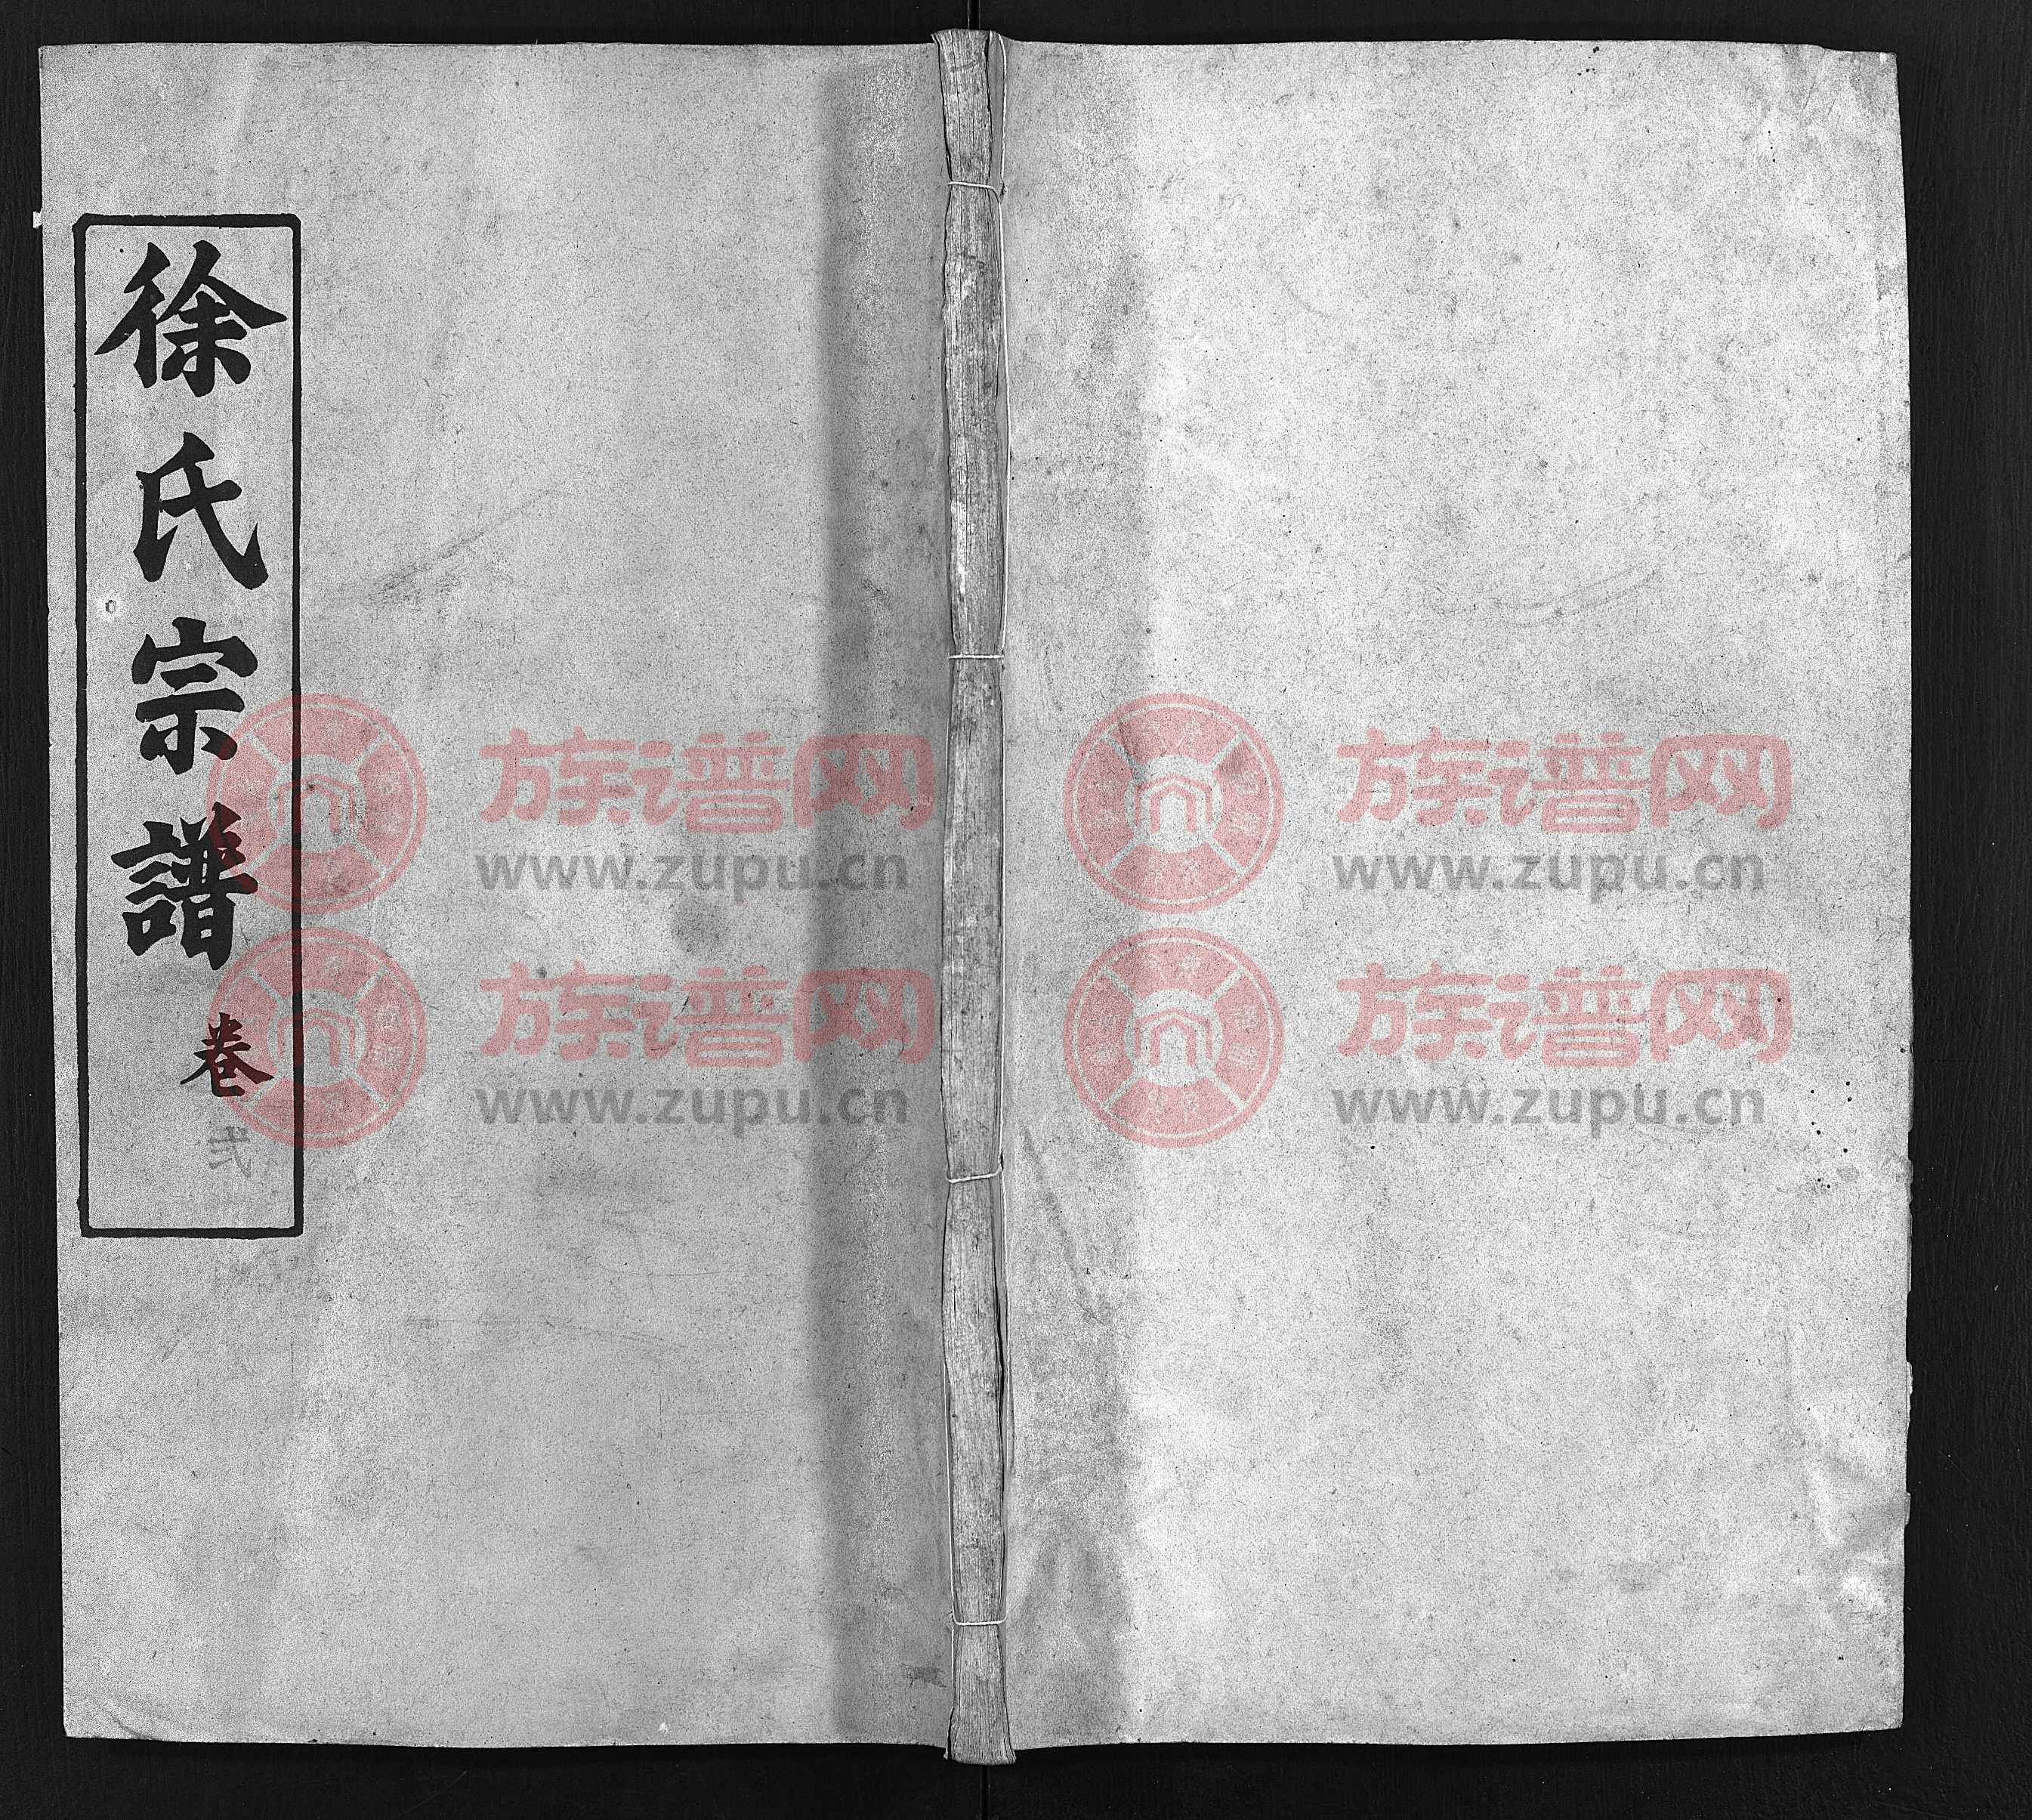 徐氏宗譜
卷
族谱网
www.zupu.cn
族谱网
www.zupu.cn
族谱网
www.zupu.cn
族谱网
www.zupu.cn